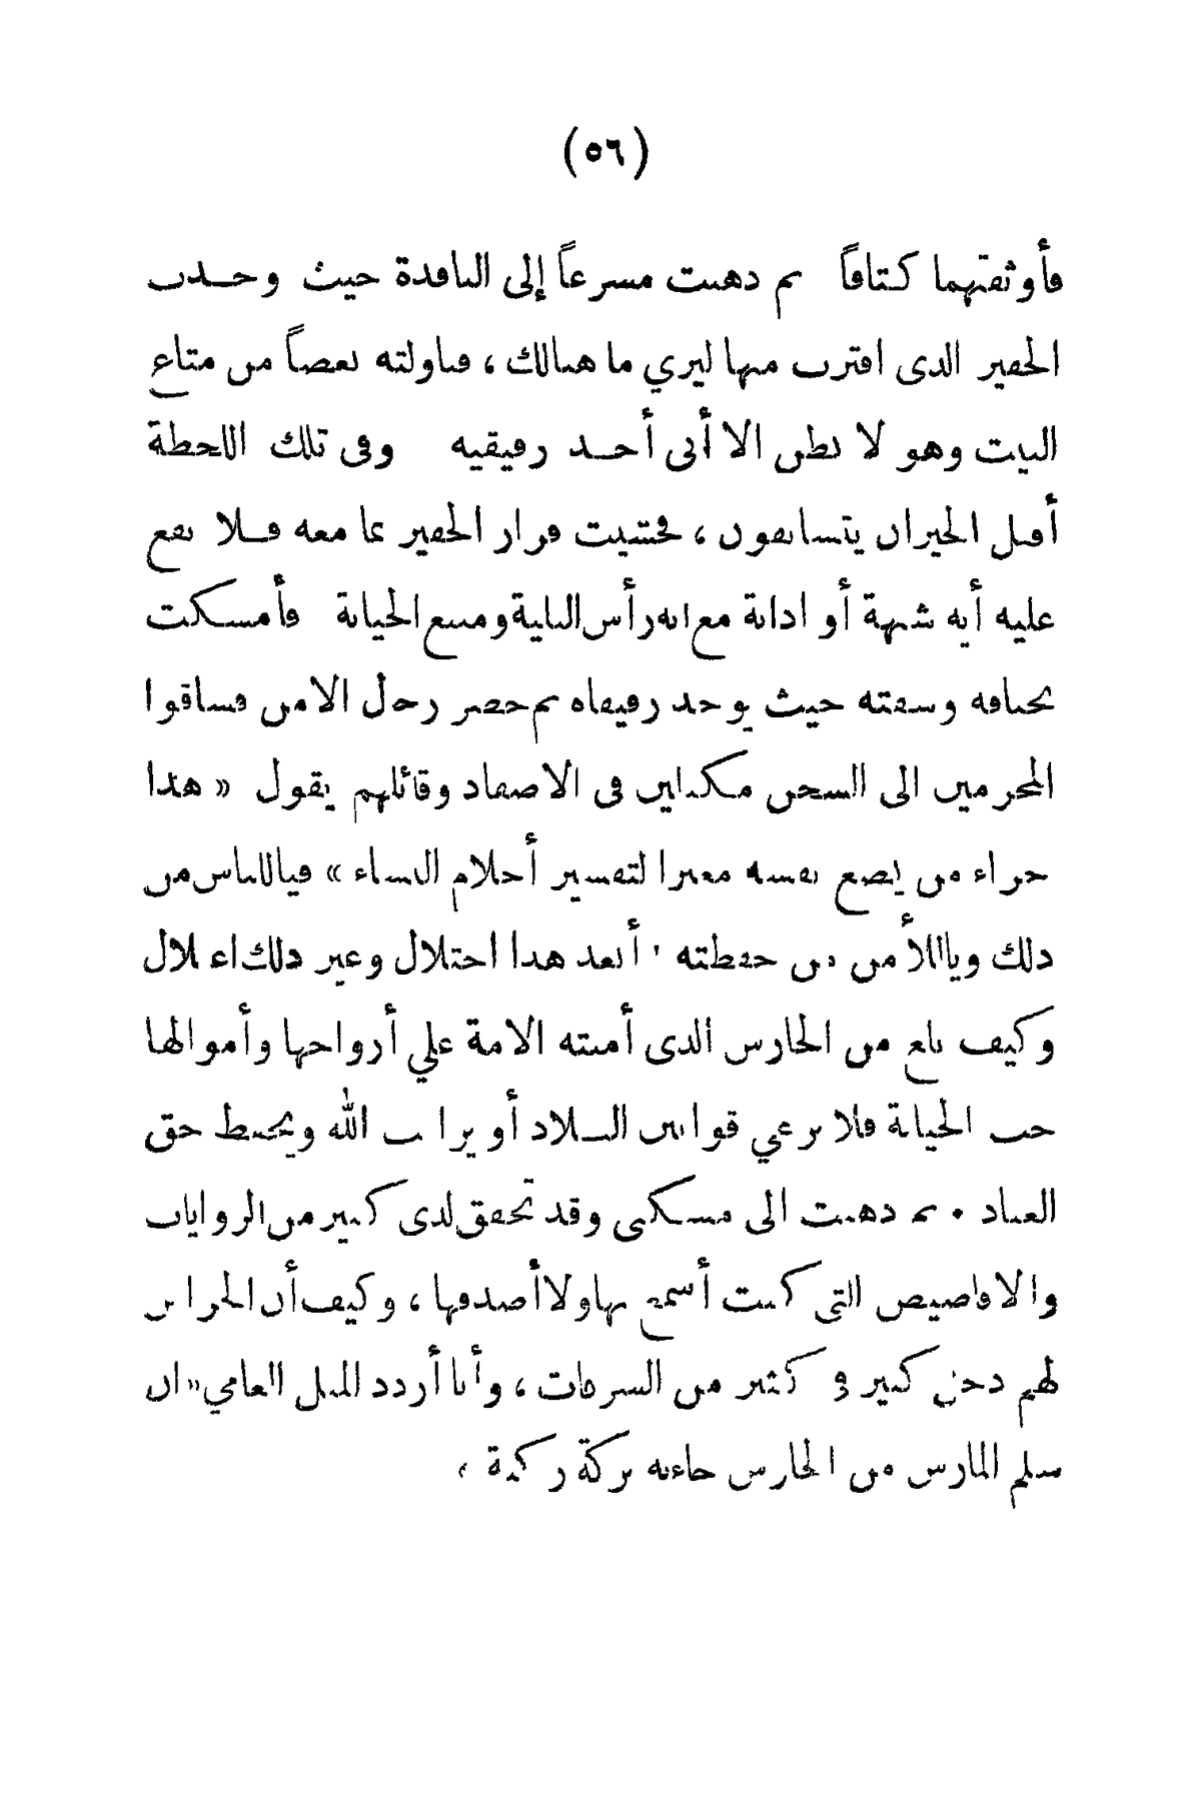 (٥٦)
فأوثقتهما كتافاً ثم ذهبت مسرعاً إلى النافذة حيث وجدت
الخفير الذى اقترب منها ليري ما هنالك ، فناولته بعضاً من متاع
البيت وهو لا يظن الا أنى أحد رفيقيه وفى تلك اللحظة
أقبل الجيران يتسابقون ، فخشيت فرار الخفير بما معه فلا تقع
عليه أيه شبهة أو ادانة مع انه رأس البلية ومنبع الخيانة فأمسكت
بخناقه وسقته حيث يوجد رفيقاه ثم حضر رجال الامن فساقوا
المجرمين الى السجن مكبلين فى الاصفاد وقائلهم يقول « هذا
جزاء من يضع نفسه معبرا لتفسير أحلام النساء » فياللناس من
ذلك وياللأمن من حفظته ، أبعد هذا احتلال وغير ذلك اعتلال
وكيف بلغ من الحارس الذى أمنته الامة علي أرواحها وأموالها
حب الخيانة فلا يرعي قوانين البلاد أو يراقب الله ويحفظ حق
العباد . ثم ذهبت الى مسكنى وقد تحقق لدى كثير من الروايات
والاقاصيص التى كنت أسمع بها ولا أصدقها ، وكيف أن الحراس
لهم دخل كبير فى كثير من السرقات ، وأنا أردد المثل العامي « ان
سلم المارس من الحارس جاءته بركة ركدة ،